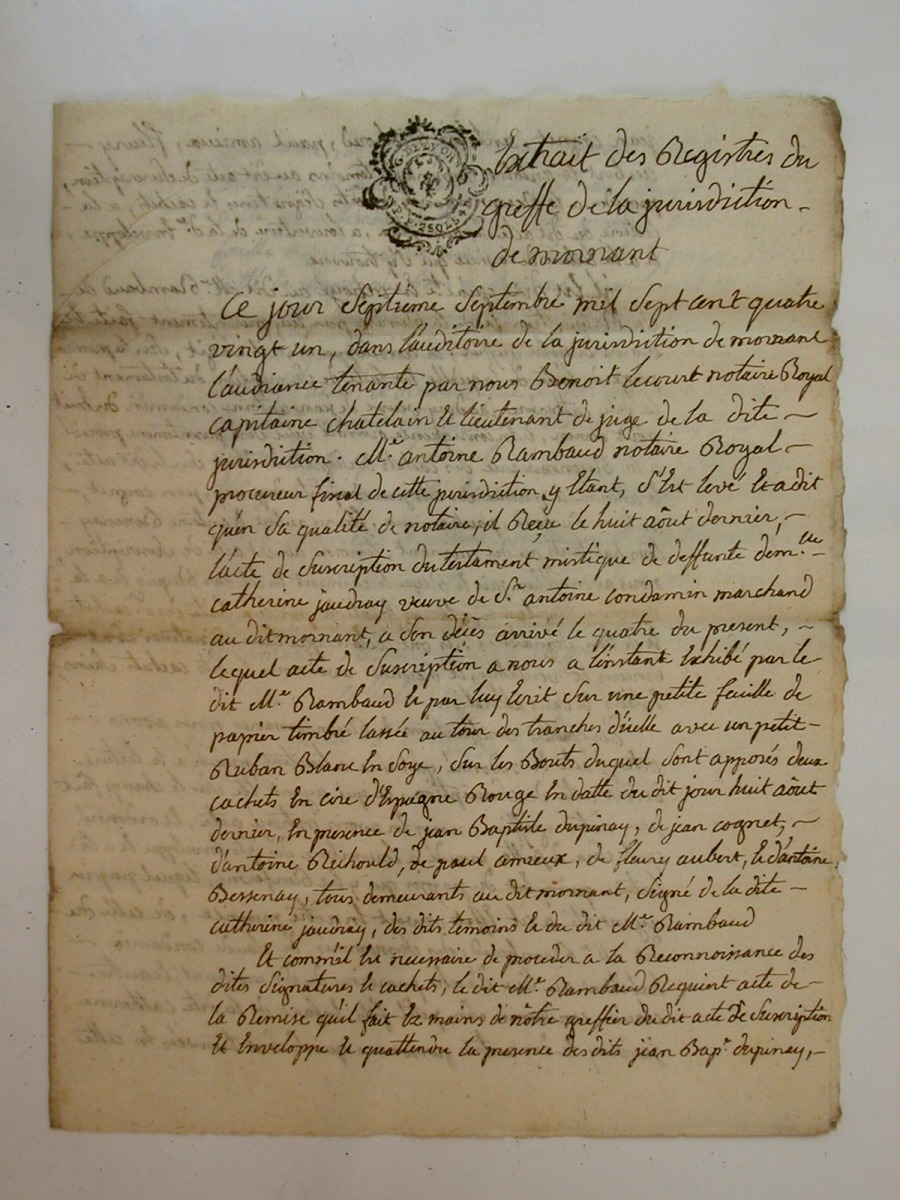 GN. DE LYON
Extrait des Registres du
greffe de la jurisdiction -
de mornant
Ce jour Septieme Septembre mil Sept cent quatre
vingt un, dans l'auditoire de la jurisdiction de mornant
l'audiance tenante par nous Benoit lecourt notaire Royal
capitaine chatelain et lieutenant de juge de la dite -
jurisdiction. Me. antoine Rambaud notaire Royal -
procureur fiscal de cette jurisdiction y Etant, s'Est levé Et a dit
qu'en Sa qualité de notaire, il Reçu le huit aôut dernier, -
l'acte de Suscription du testament mistique de deffunte demlle
catherine jaudray veuve de Sr. antoine condamin marchand
au dit mornant, a Son décès arrivé le quatre du present, -
lequel acte de Suscription a nous a l'instant Exhibé par le
dit Me. Rambaud Et par luy Ecrit Sur une petite feuille de
papier timbré lassée au tour des tranches d'icelle avec un petit -
Ruban Blanc En Soye, Sur les Bouts duquel sont apposés deux
cachets En cire d'Espagne Rouge En datte du dit jour huit aôut
dernier, En presence de jean Baptiste dupinay, de jean cognet, -
d'antoine Richould, de paul amieux, de fleury aubert, Et d'antoine
Bessenay, tous demeurants au dit mornant, Signé de la dite -
catherine jaudray, des dits temoins Et du dit Me. Rambaud
Et comm'il Est necessaire de proceder a la Reconnoissance des
dites Signatures Et cachets, le dit Me. Rambaud Requiert acte de -
la Remise qu'il fait Ez mains de nôtre greffier du dit acte de Suscription
Et Enveloppe Et qu'attendu la presence des dits jean Bapt. dupinay, -